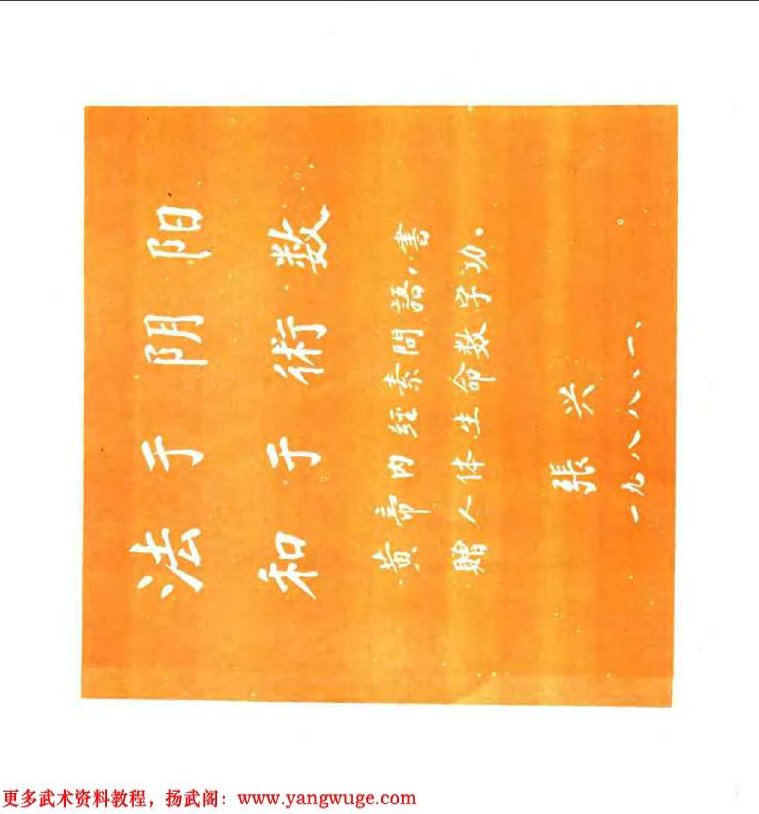 法于阴阳
和于術数
黄帝内经素問語,書
贈人体生命数字功。
張兴
一九八八、一、
更多武术资料教程，扬武阁：www.yangwuge.com